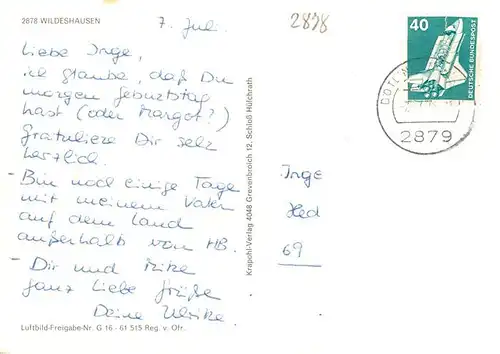 2878 WILDESHAUSEN
7. Jul.
2878
Liebe Inge,
ich glaube, daß Du
morgen Geburtstag
hast (oder Margot?)
Gratuliere Dir sehr
herzlich.
- Bin noch einige Tage
mit meinem Vater
auf dem Land
außerhalb von HB.
- Dir und
ganz liebe Grüße
Deine Ulrike
Luftbild-Freigabe-Nr. G 16 - 61 515 Reg. v. Ofr.
Krapohl-Verlag 4048 Grevenbroich 12, Schloß Hülchrath
40
DEUTSCHE BUNDESPOST
2879
Inge
Hed
69